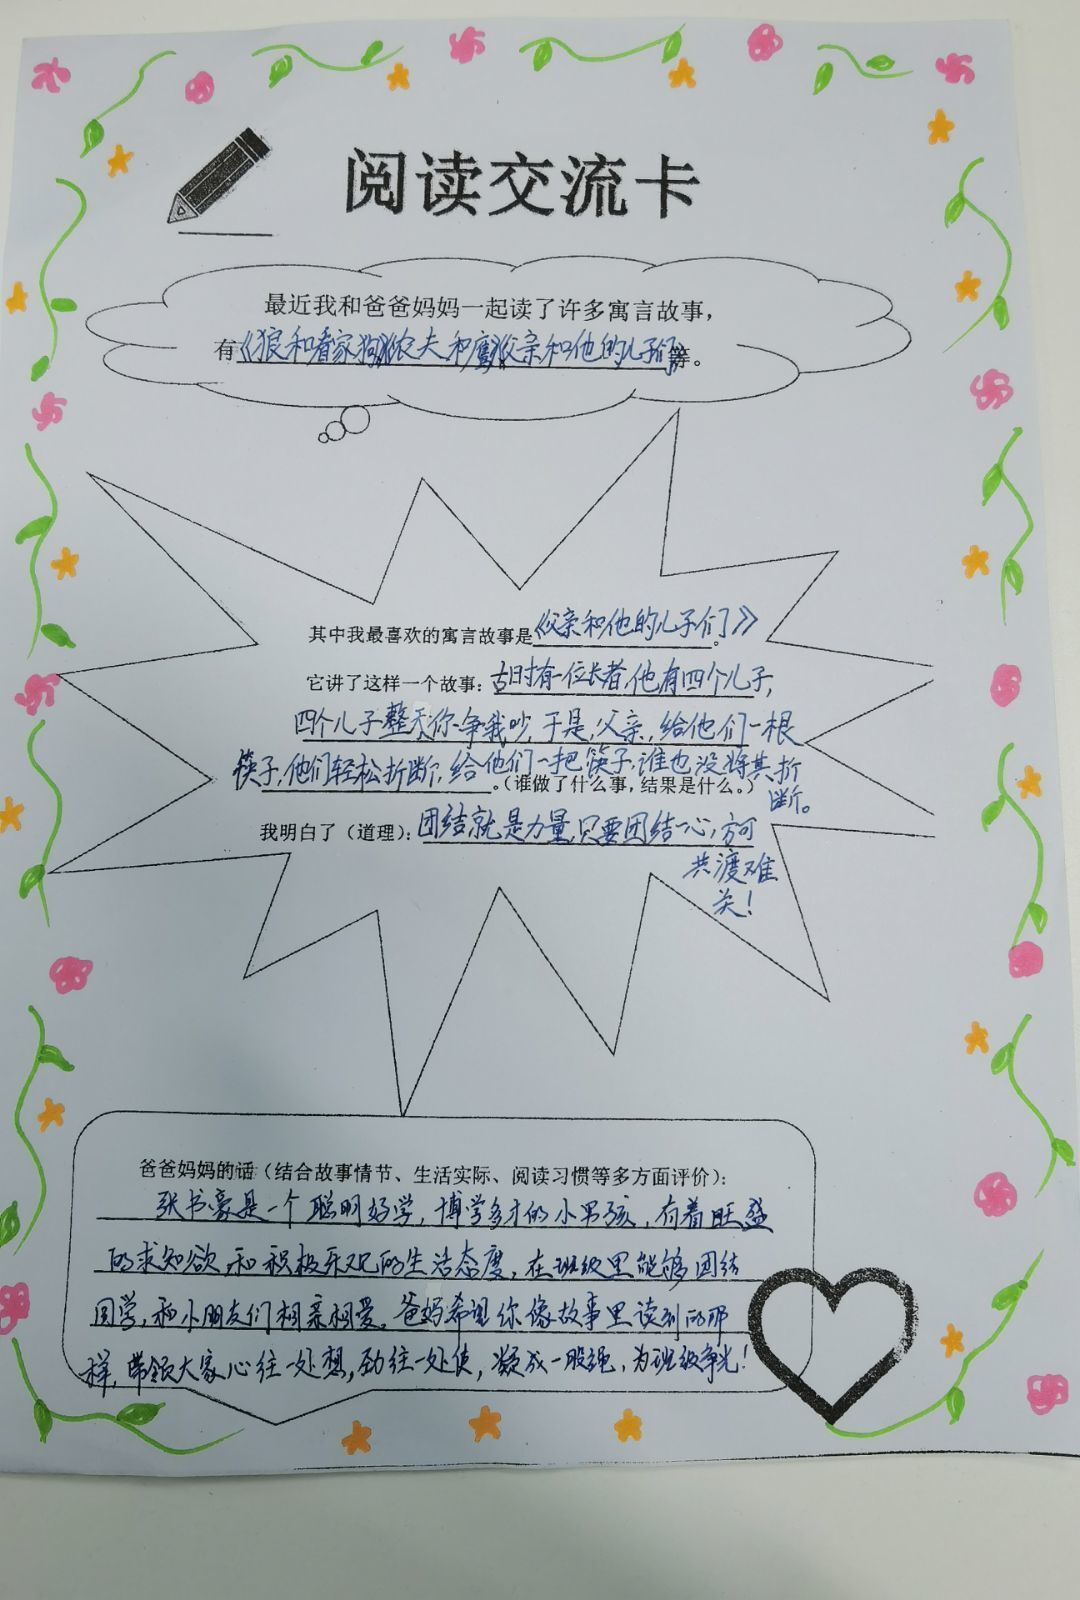 阅读交流卡
最近我和爸爸妈妈一起读了许多寓言故事，
有《狼和看家狗》《农夫和鹰》《父亲和他的儿子们》等。
其中我最喜欢的寓言故事是《父亲和他的儿子们》。
它讲了这样一个故事：古时有一位长者，他有四个儿子，
四个儿子整天你争我吵，于是，父亲，给他们一根
筷子，他们轻松折断，给他们一把筷子，谁也没将其折
断。
。（谁做了什么事，结果是什么。）
我明白了（道理）：团结就是力量，只要团结一心，方可
共渡难
关！
爸爸妈妈的话（结合故事情节、生活实际、阅读习惯等多方面评价）：
张书豪是一个聪明好学，博学多才的小男孩，有着旺盛
的求知欲和积极乐观的生活态度，在班级里能够团结
同学，和小朋友们相亲相爱。爸妈希望你像故事里读到的那
样，带领大家心往一处想，劲往一处使，凝成一股绳，为班级争光！